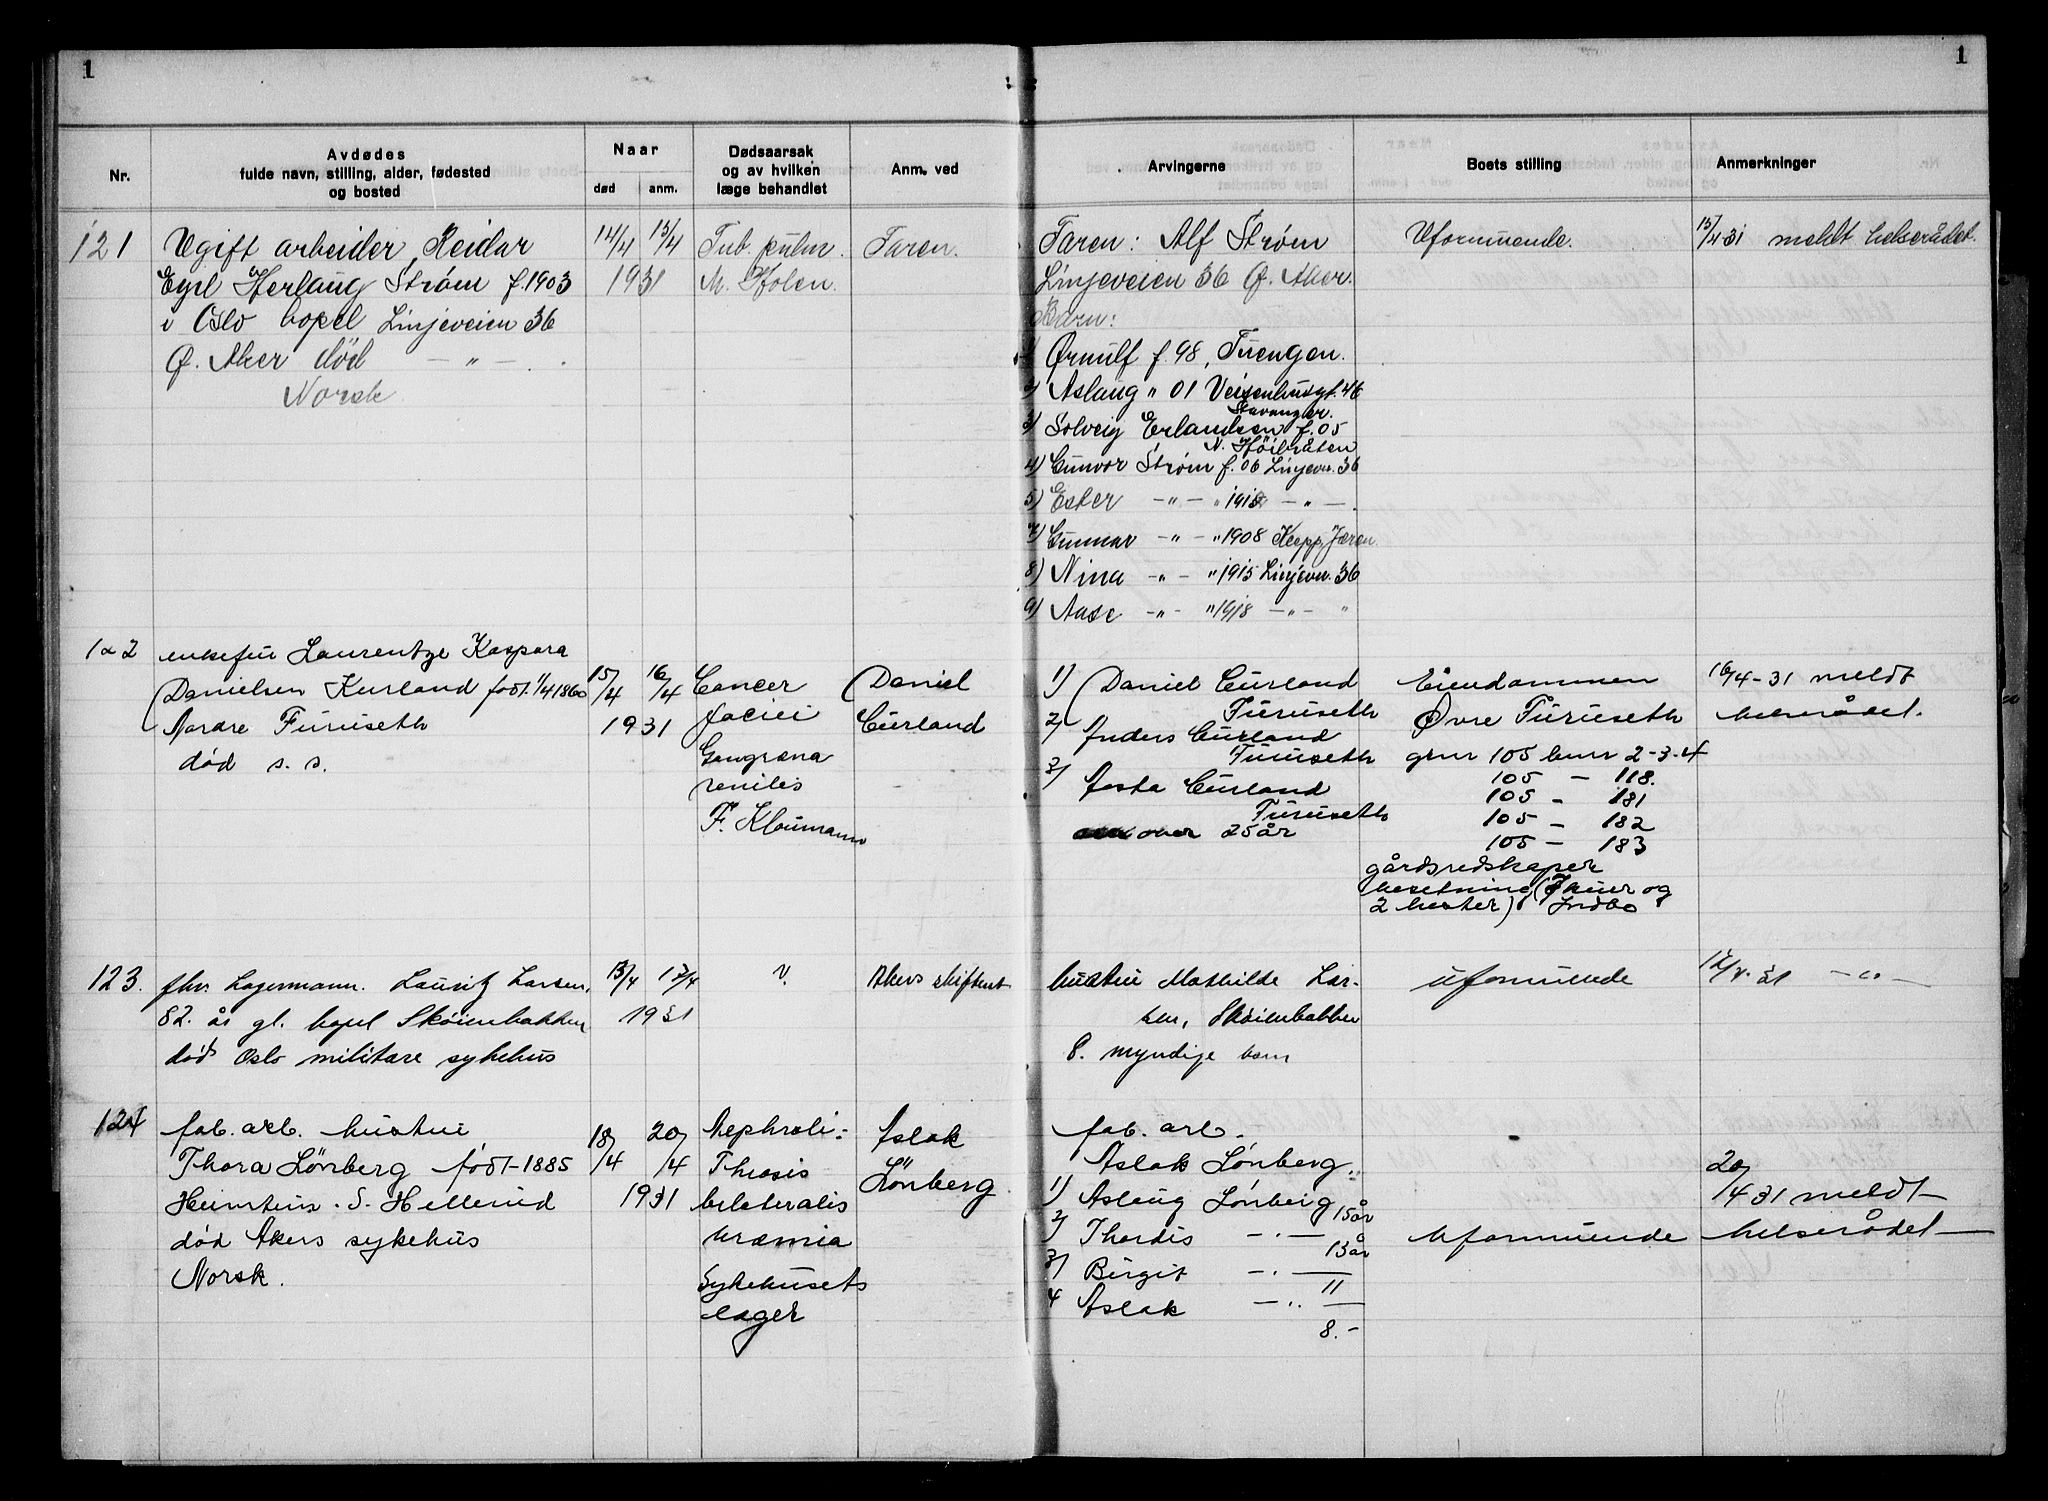 1
1
Nr.
Avdødes
fulde navn, stilling, alder, fødested
og bosted
Naar
død
anm.
Dødsaarsak
og av hvilken
læge behandlet
Anm. ved
Arvingerne
Boets stilling
Anmerkninger
121
Ugift arbeider, Reidar
Egil Herlaug Strøm f. 1903
i Oslo bopel Linjeveien 36
Ø. Aker død — " — .
Norsk
14/4 15/4
1931
Tub. pulm.
M. Holen.
Faren.
Faren: Alf Strøm
Linjeveien 36 Ø. Aker.
Barn:
1) Ørnulf f. 98, Tuengen.
2) Aslaug " 01 Veisenhusgt. 46
Stavanger.
3) Solveig Erlandsen f. 05
N. Høibråten
4) Gunvor Strøm f. 06 Linjevn. 36
5) Ester — " — " — " —
7) Gunnar — " — " 1908 Klepp, Jæren.
8) Nina — " — " 1915 Linjevn. 36
9) Aase — " — " 1918 — " — "
Uformuende.
15/4 31 meldt helserådet.
122
enkefru Laurentze Kaspara
Danielsen Kurland født 1/4 1860
Nordre Furuseth
død s. s.
15/4 16/4
1931
Cancer
faciei
Gangræna
senilis
F. Kloumann
Daniel
Curland
1) Daniel Curland
Furuseth
2) Anders Curland
Furuseth
3) Asta Curland
Furuseth
over 25 år
Eiendommen
Øvre Furuseth
gnr 105 bnr 2-3-4
105 — 118.
105 — 181
105 — 182
105 — 183
gårdsredskaper
besetning (7 kuer og
2 hester) Indbo
16/4-31 meldt
helserådet.
123.
fhv. lagermann. Lauritz Larsen,
82. år gl. bopel Skøienbakken
død Oslo militære sykehus
13/4 17/4
1931
?
Akers skifterett
hustru Mathilde Lar-
sen, Skøienbakken
8. myndige barn
uformuende
17/4. 31 — " —
124
fab. arb. hustru
Thora Lönberg født-1885
Heimstein. S. Hellerud
død Akers sykehus
Norsk.
18/4 20/4
1931
Nephroli-
Thiasis
bilateralis
Uræmia
Sykehusets
læger
Aslak
Lönberg
fab. arb.
Aslak Lønberg.
1) Aslaug Lønberg
15 år
2) Thordis — " —
13 år
3) Birgit — " —
11
4 Aslak — " —
8.-
Uformuende
20/4 31 meldt
helserådet